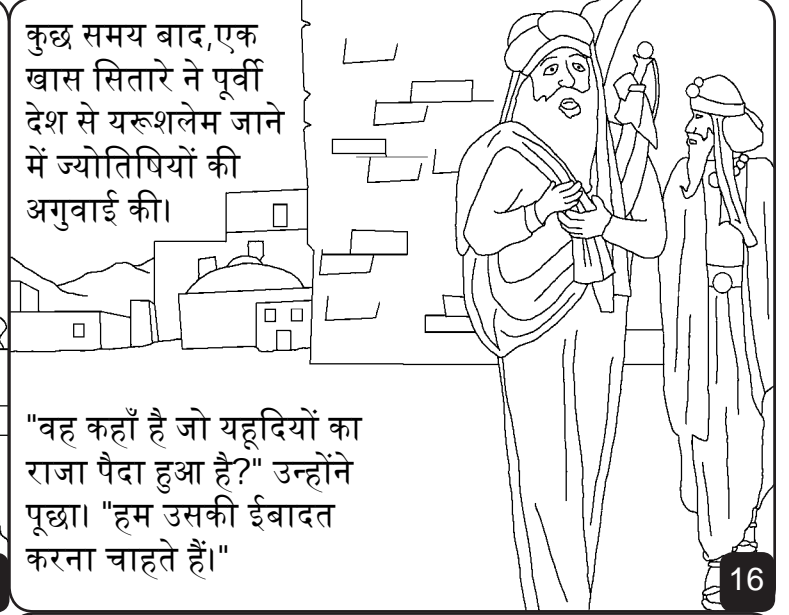 कुछ समय बाद,एक
खास सितारे ने पूर्वी
देश से यरूशलेम जाने
में ज्योतिषियों की
अगुवाई की।
"वह कहाँ है जो यहूदियों का
राजा पैदा हुआ है?" उन्होंने
पूछा। "हम उसकी ईबादत
करना चाहते हैं।"
16